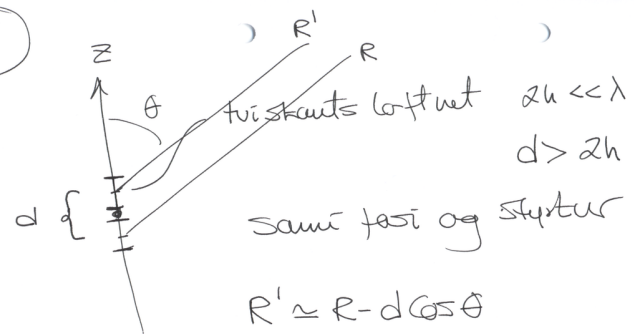 R'
R
Z
θ
tvískauts loftnet 2h << λ
d > 2h
d {
sami fasi og styrkur
R' ≃ R - d Cos θ